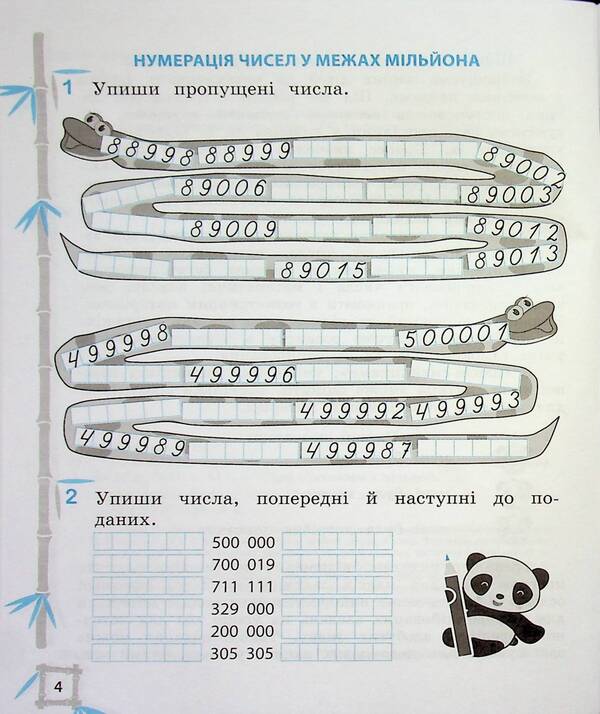 НУМЕРАЦІЯ ЧИСЕЛ У МЕЖАХ МІЛЬЙОНА
1 Упиши пропущені числа.
88998 88999 89002
89006 89003
89009 89012
89015 89013
499998 500001
499996
499992 499993
499989 499987
2 Упиши числа, попередні й наступні до по-
даних.
500 000
700 019
711 111
329 000
200 000
305 305
4